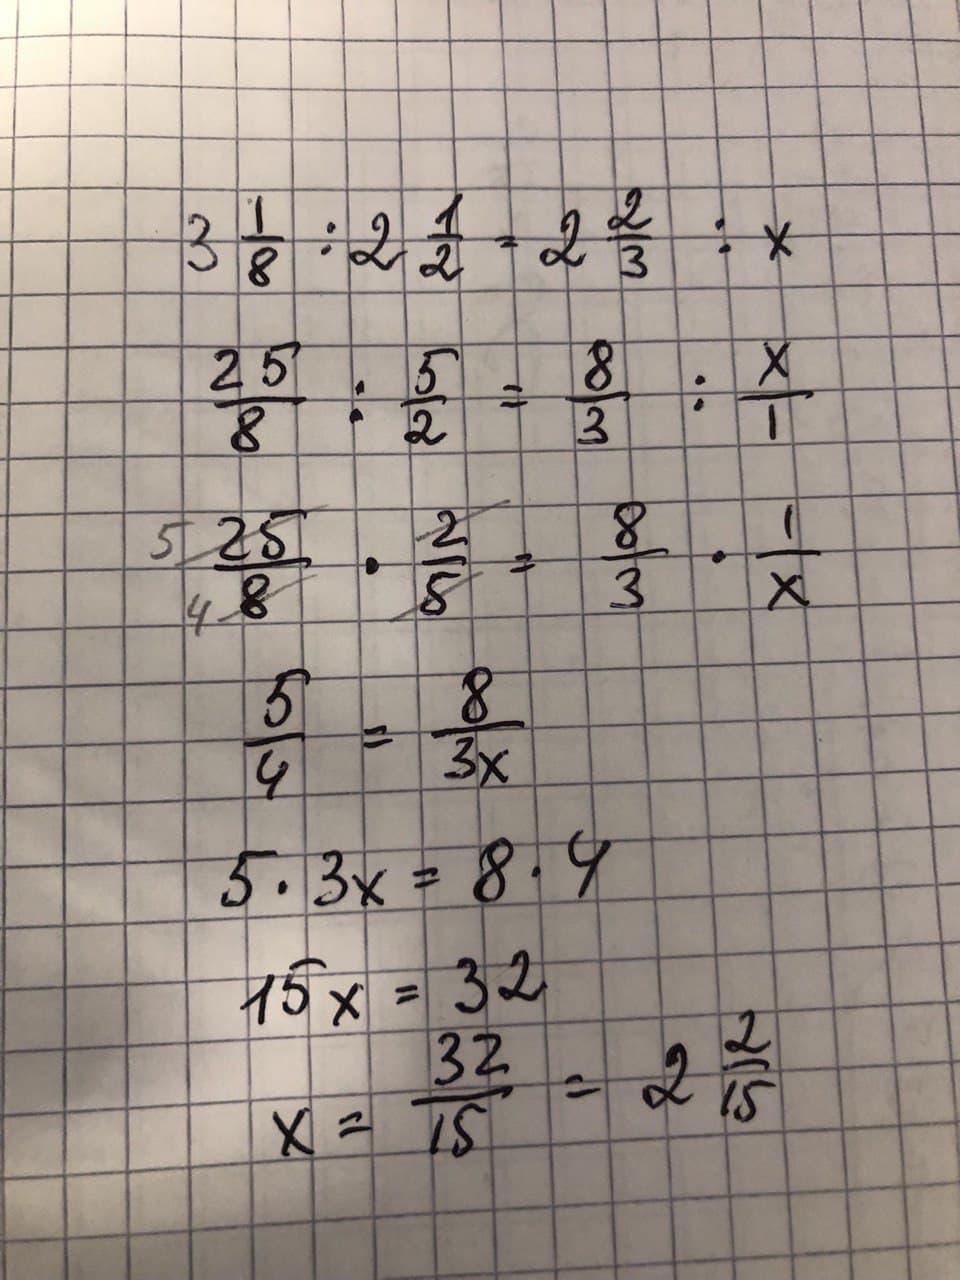 3 1/8 : 2 1/2 = 2 2/3 : x
25/8 : 5/2 = 8/3 : x/1
5 25/8 4 · 2/5 = 8/3 · 1/x
5/4 = 8/3x
5 · 3x = 8 · 4
15x = 32
x = 32/15 = 2 2/15